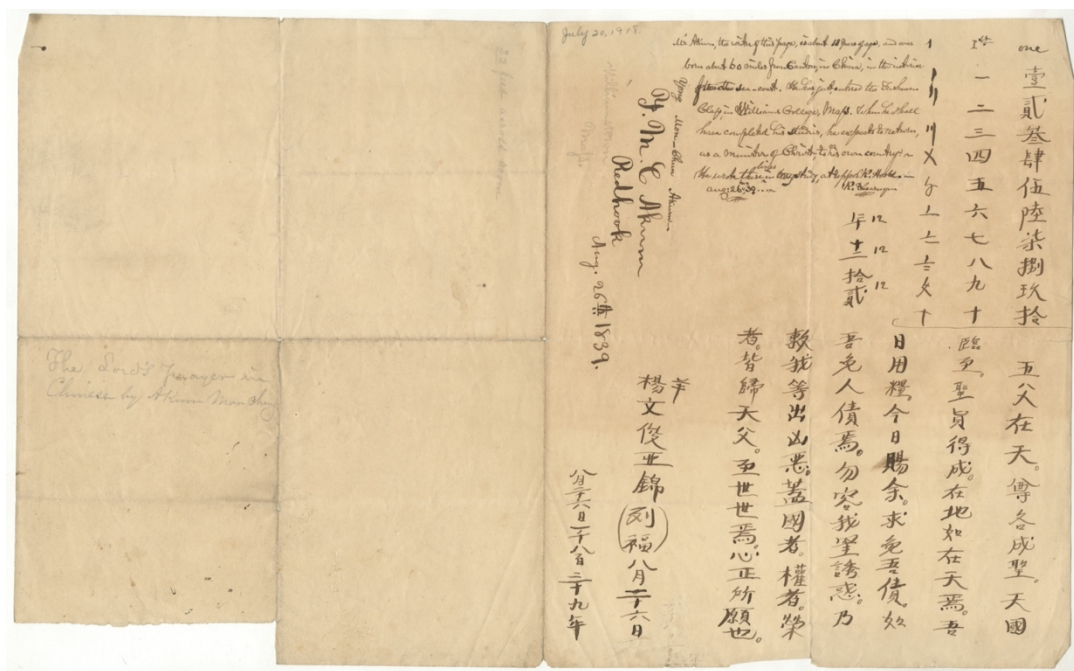 July 20, 1918.
Mr Akum, the writer of this page, is about 18 years of age, and was
born about 60 miles from Canton, in China, in the interior
from the sea-coast. He has just entered the Freshman
Class, in Williams College, Mass. When he shall
have completed his studies, he expects to return,
as a minister of Christ, to his own country.
He wrote these lines in my study, at Upper R. Hook
Aug. 26, 39.
one 壹貳叁肆伍陸柒捌玖拾
1st 一二三四五六七八九十
〡〢〣〤〥〦〧〨〩十
12 12 12
年 十二 拾貳
父在天。尊名成聖。天國
臨至。聖旨得成。在地如在天焉。吾
日用糧,今日賜余。求免吾債。如
吾免人債焉。勿容我墜誘惑。乃
救我等出凶惡。蓋國者。權者。榮
者。皆歸天父。至世世焉。心正所願也。
Yong Mon-Chun Akum
Y. M. C Akum
Redhook
Aug. 26th 1839.
楊文俊亚錦(列福)八月二十六日
八月二十六日一千八百三十九年
The Lord's Prayer in
Chinese by Akum Mon Chun